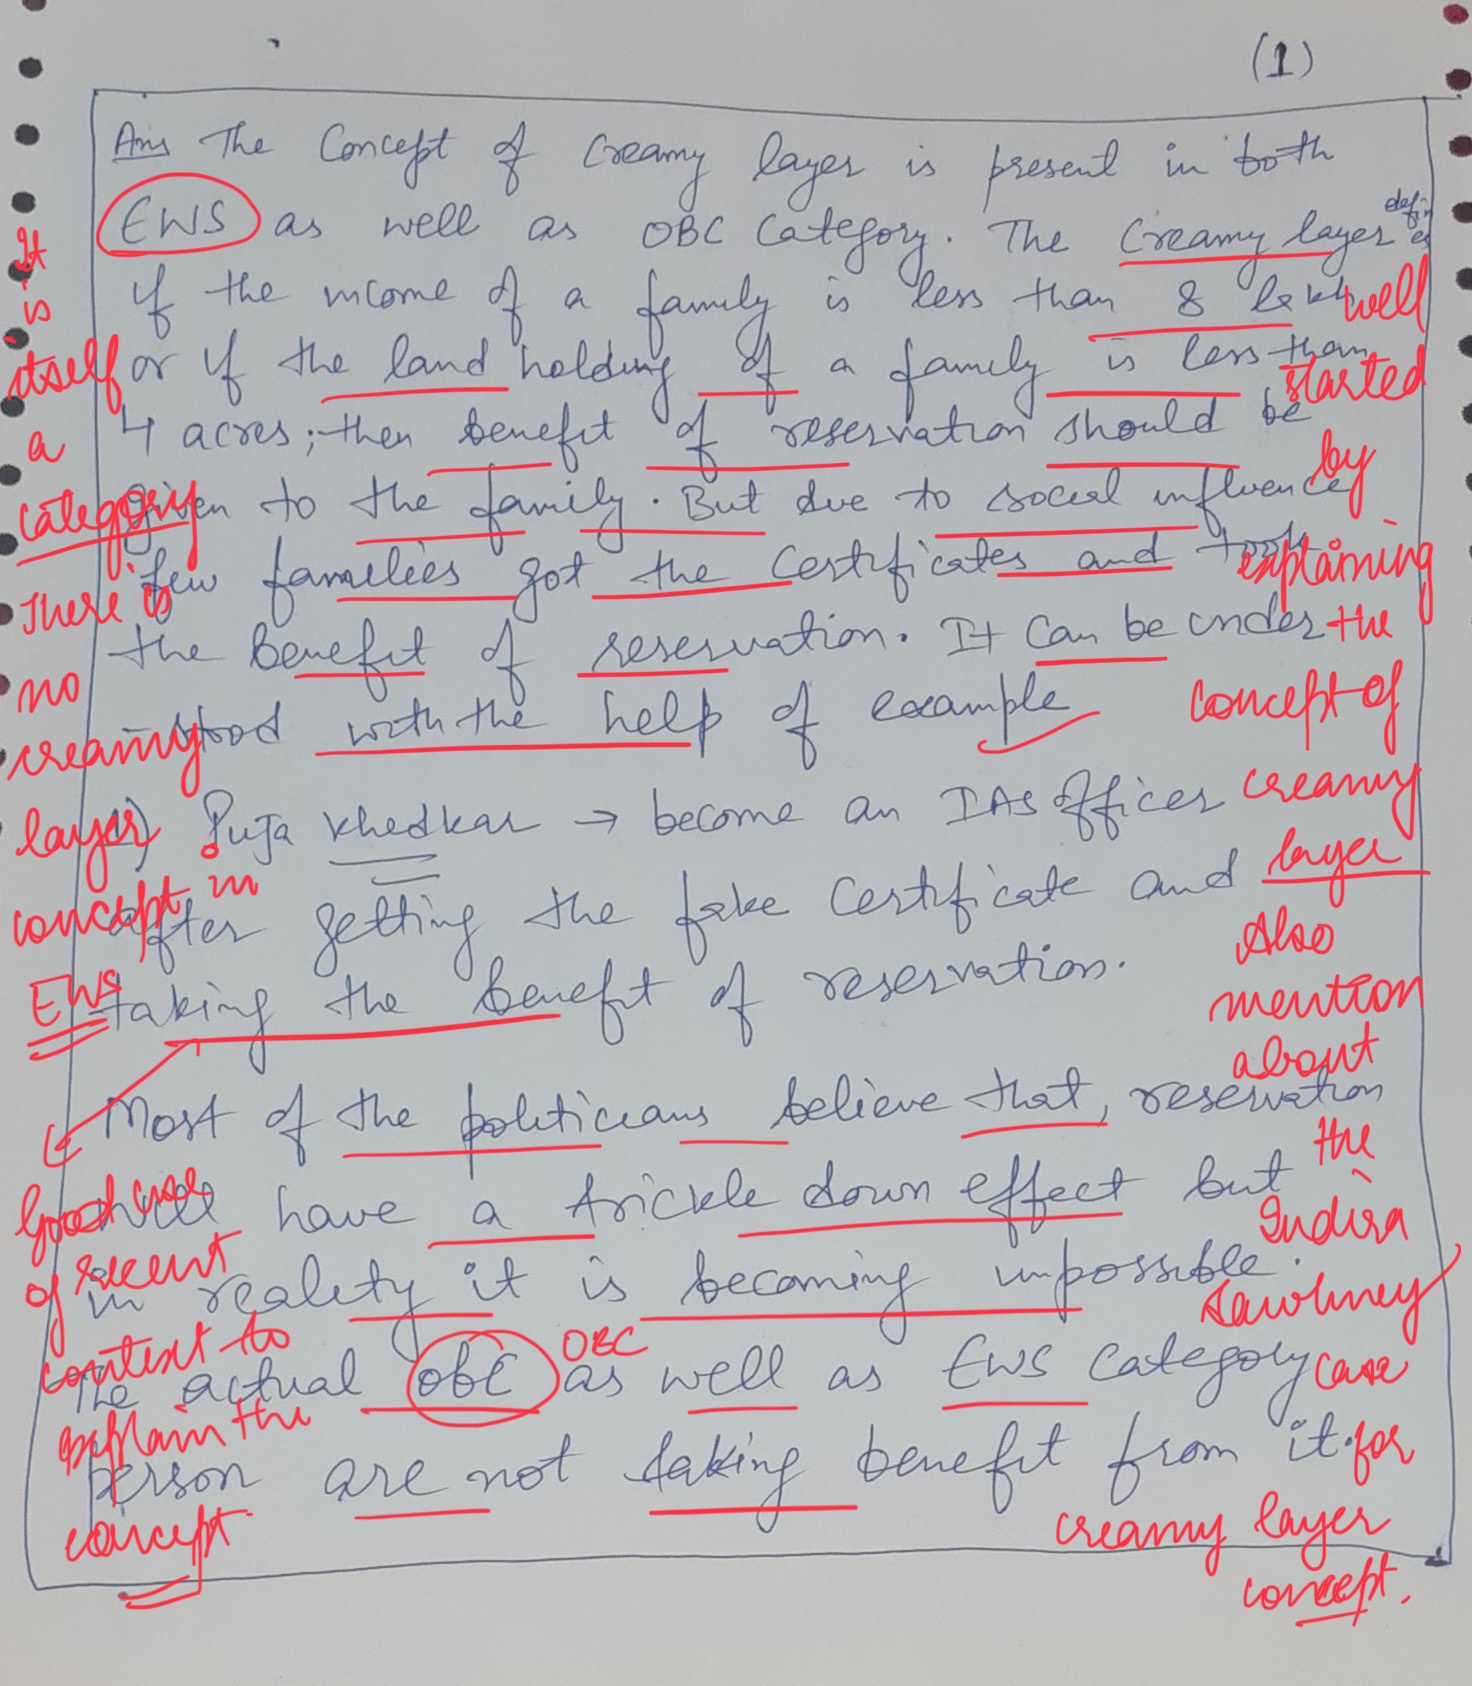 (1)
Ans The Concept of Creamy layer is present in both
EWS as well as OBC Category. The Creamy layer defines
if the income of a family is less than 8 lakh
or if the land holding of a family is less than
4 acres; then benefit of reservation should be
given to the family. But due to social influence
few families got the Certificates and took
the benefit of reservation. It can be under
-stood with the help of example
1) Puja Khedkar → become an IAS officer
after getting the fake Certificate and
taking the benefit of reservation.
Most of the politicians believe that, reservation
will have a trickle down effect but
in reality it is becoming impossible.
The actual obc as well as EWS Category
person are not taking benefit from it.
It
is
itself
a
category
There is
no
creamy
layer
concept in
EWS
Good use
of recent
context to
explain the
concept
OBC
well
started
by
explaining
the
concept of
creamy
layer
Also
mention
about
the
Indira
Sawhney
case
for
creamy layer
concept.